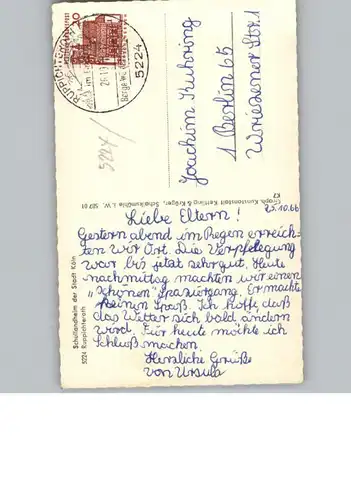 RUPPICHTEROTH
5224
5224/
Joachim Kuhring
1 Berlin 65
Wriezener Str. 1
Graph. Kunstanstalt Kettling & Krüger, Schalksmühle i. W.
K7
25.10.66
Liebe Eltern!
Gestern abend im Regen erreich-
ten wir Ort. Die Verpflegung
war bis jetzt sehr gut. Heute
nachmittag machten wir einen
„Schönen" Spaziergang. Er machte
keinen Spaß. Ich hoffe, daß
das Wetter sich bald ändern
wird. Für heute möhte ich
Schluß machen.
Herzliche Grüße
von Ursula
Schullandheim der Stadt Köln
5224 Ruppichteroth